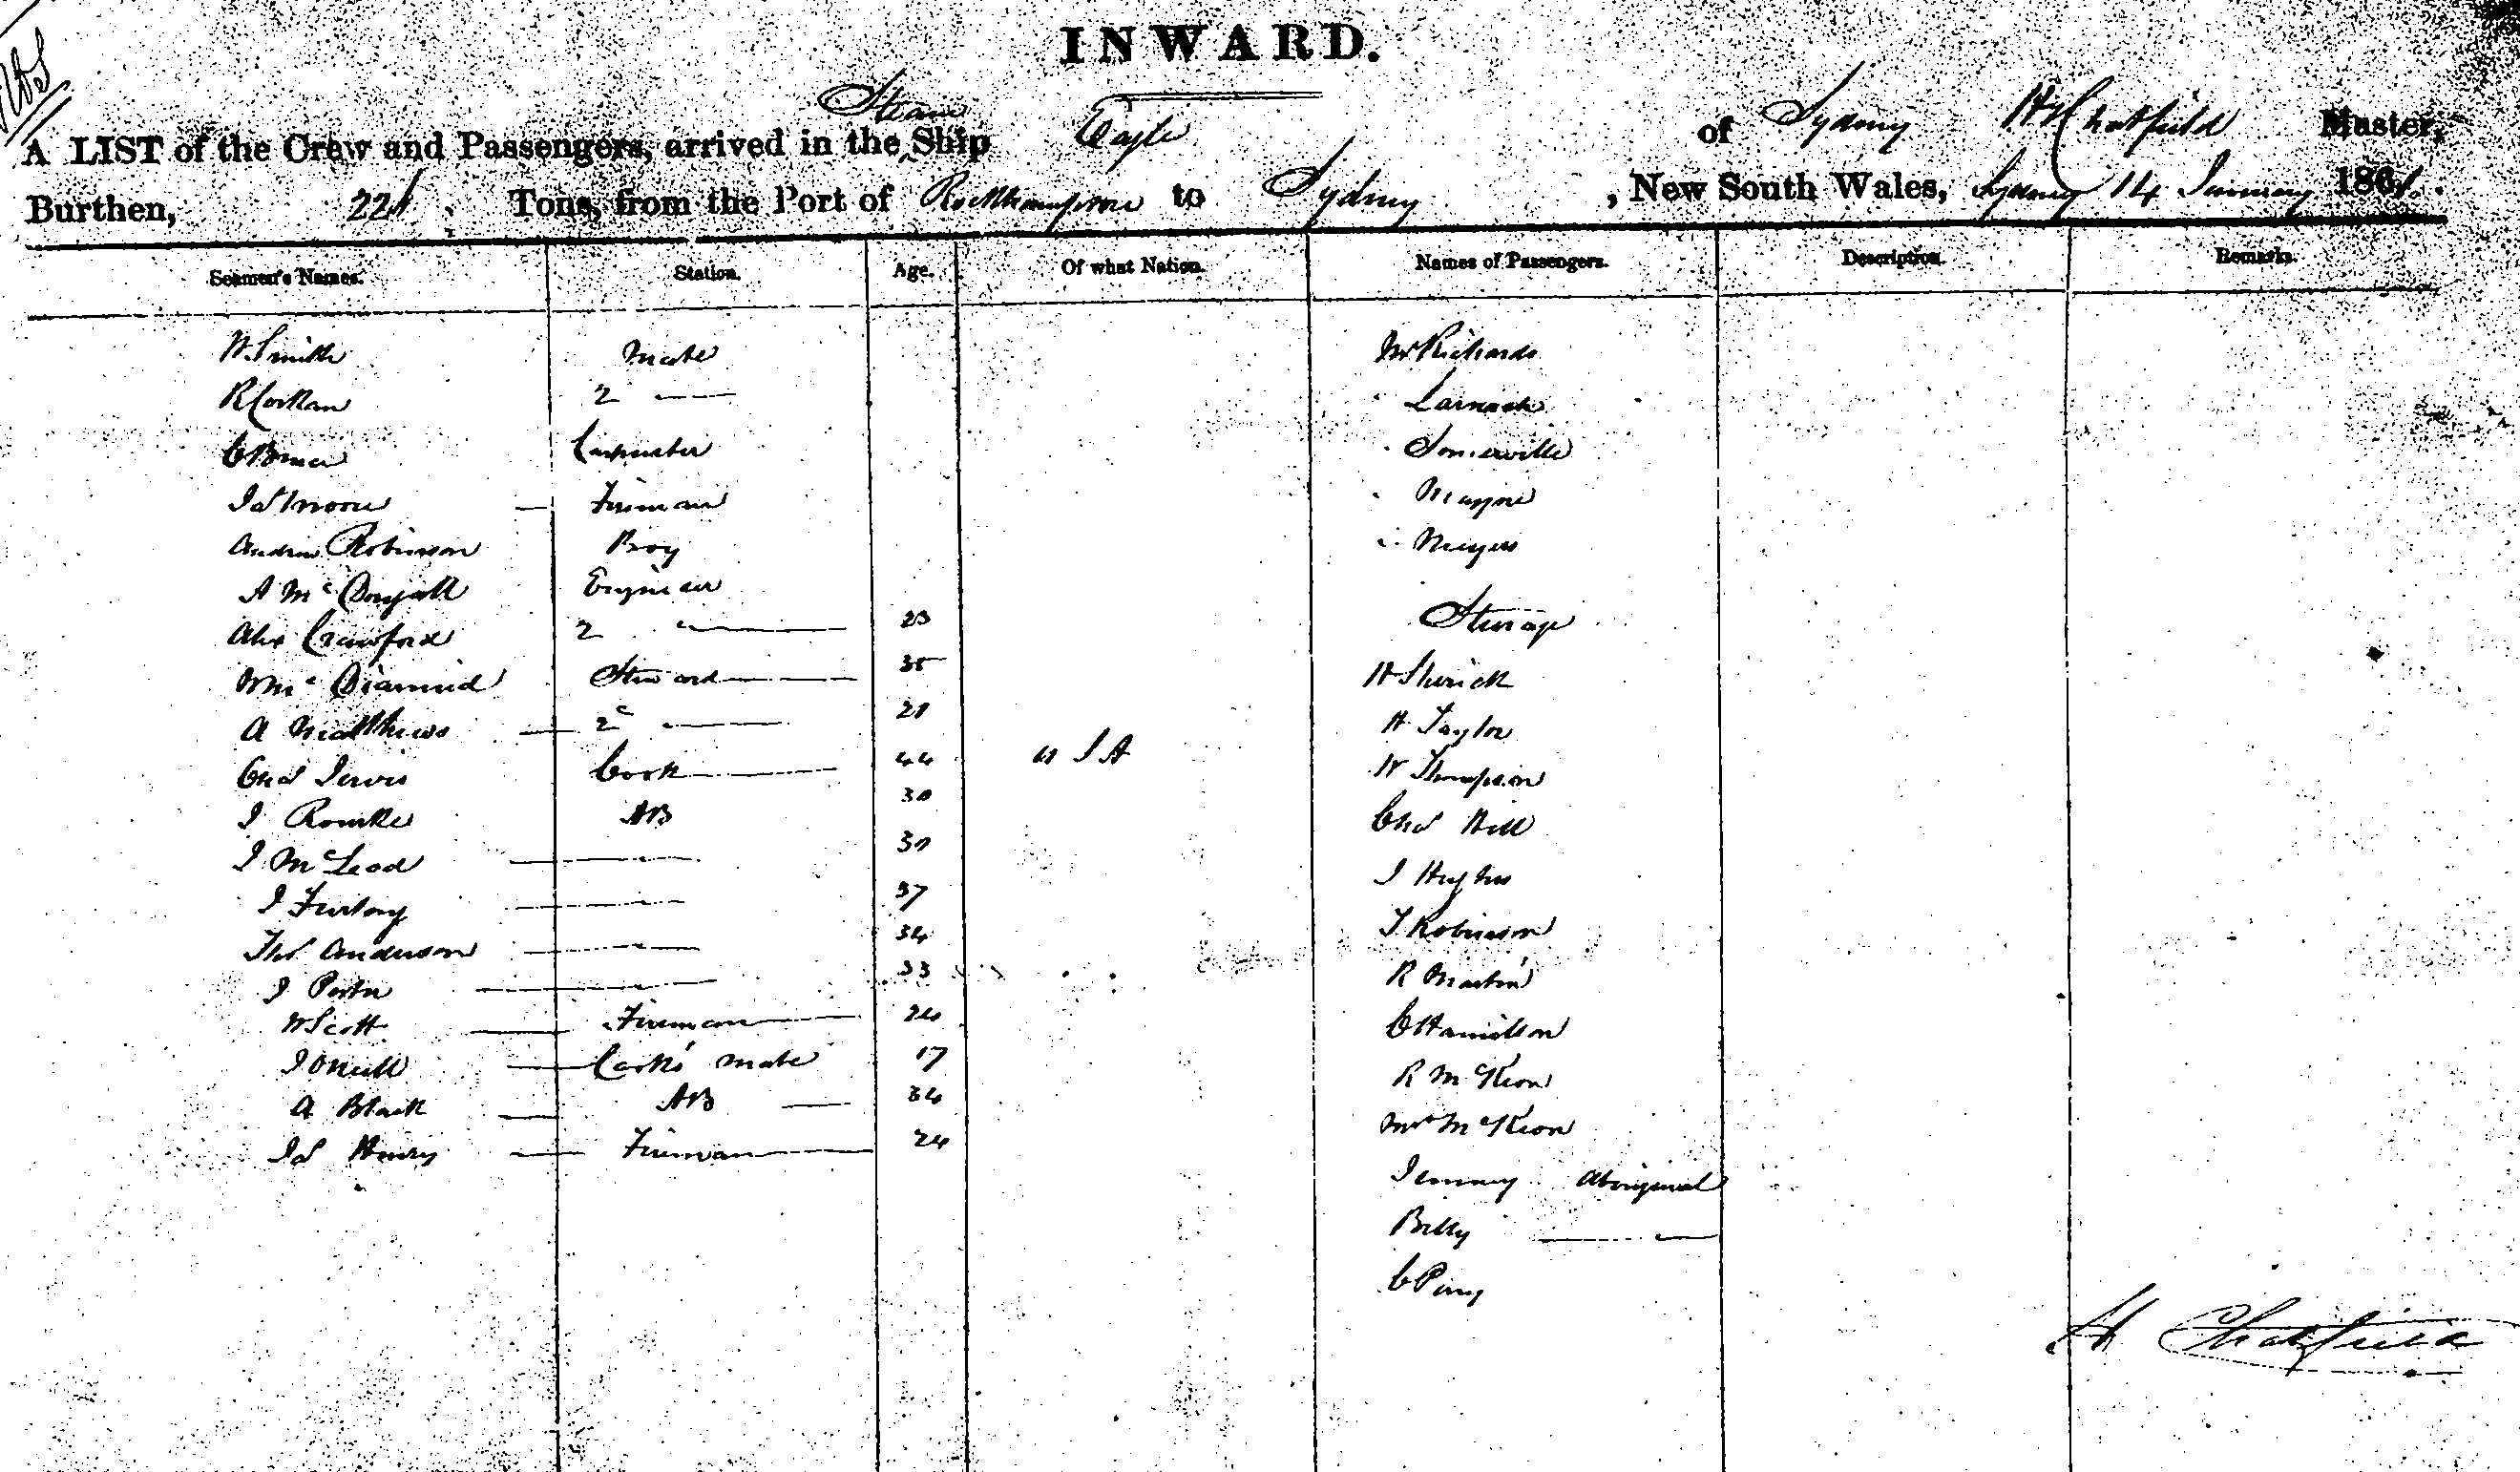 INWARD.
A LIST of the Crew and Passengers, arrived in the Steam Ship Eagle of Sydney H Chatfield Master,
Burthen, Tons, from the Port of Rockhampton to Sydney, New South Wales, Sydney 14 January 1861.
Seamen's Names. Station. Age. Of what Nation. Names of Passengers. Description. Remarks.
W. Smith Mate Mr Richards
2 Larnach
Carpenter Somerville
Jas Moore Fireman Mayne
Andrew Robinson Boy
A McDougall Engineer
Alex Crawford 2 23 Steerage
W McDiarmid Steward 35
A Matthews 2d H Taylor
Chas Jervis Cook 44 W Thompson
J Rourke AB 30 Chas Hill
J McLeod 30 J Hughes
J Furlong 37 T Robinson
Thos Anderson 34 R Martin
J Porter 33 C Hamilton
W Scott Fireman 24 R McKeon
J ONeill mate 17 Mrs McKeon
A Black AB 34 Jemmy Aboriginal
Jas Henry Fireman 24 Billy
H Chatfield